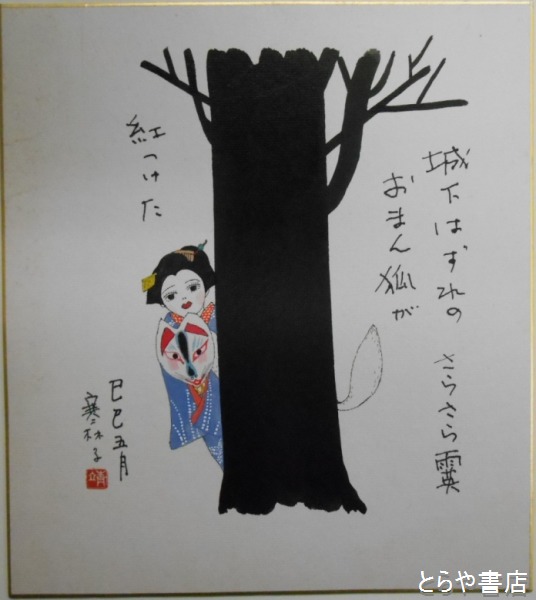 城下はずれの さらさら霙
おまん狐が
紅つけた
己巳五月
寒林子
靖
とらや書店